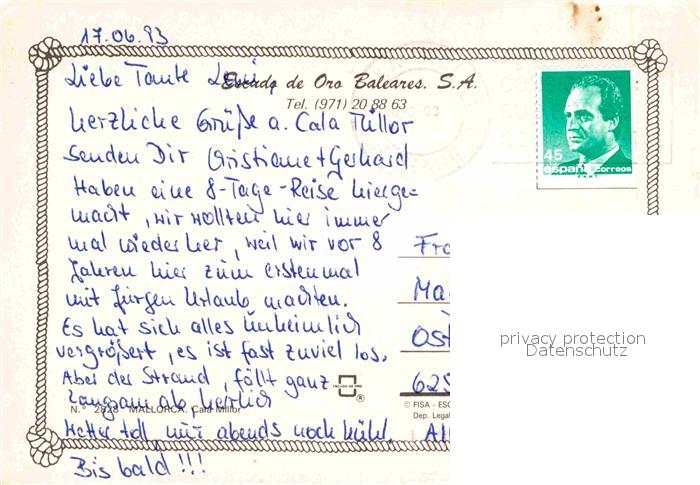 17.06.93
Liebe Tante
Escudo de Oro Baleares, S.A.
Tel. (971) 20 88 63
herzliche Grüße a. Cala Millor
senden Dir Christiane + Gerhard
Haben eine 8-Tage-Reise hierge=
macht, wir wollten hier immer
mal wieder her, weil wir vor 8
Jahren hier zum erstenmal
mit Jürgen Urlaub machten.
Es hat sich alles unheimlich
vergrößert, es ist fast zuviel los.
Aber der Strand, fällt ganz
langsam ab, herrlich
N.º 2828 - MALLORCA. Cala Millor
Wetter toll, nur abends noch kühl.
Bis bald!!!
45
españa correos
Fra
Ma
Ost
625
All
ESCUDO DE ORO
®
© FISA - ESC
Dep. Legal
privacy protection
Datenschutz